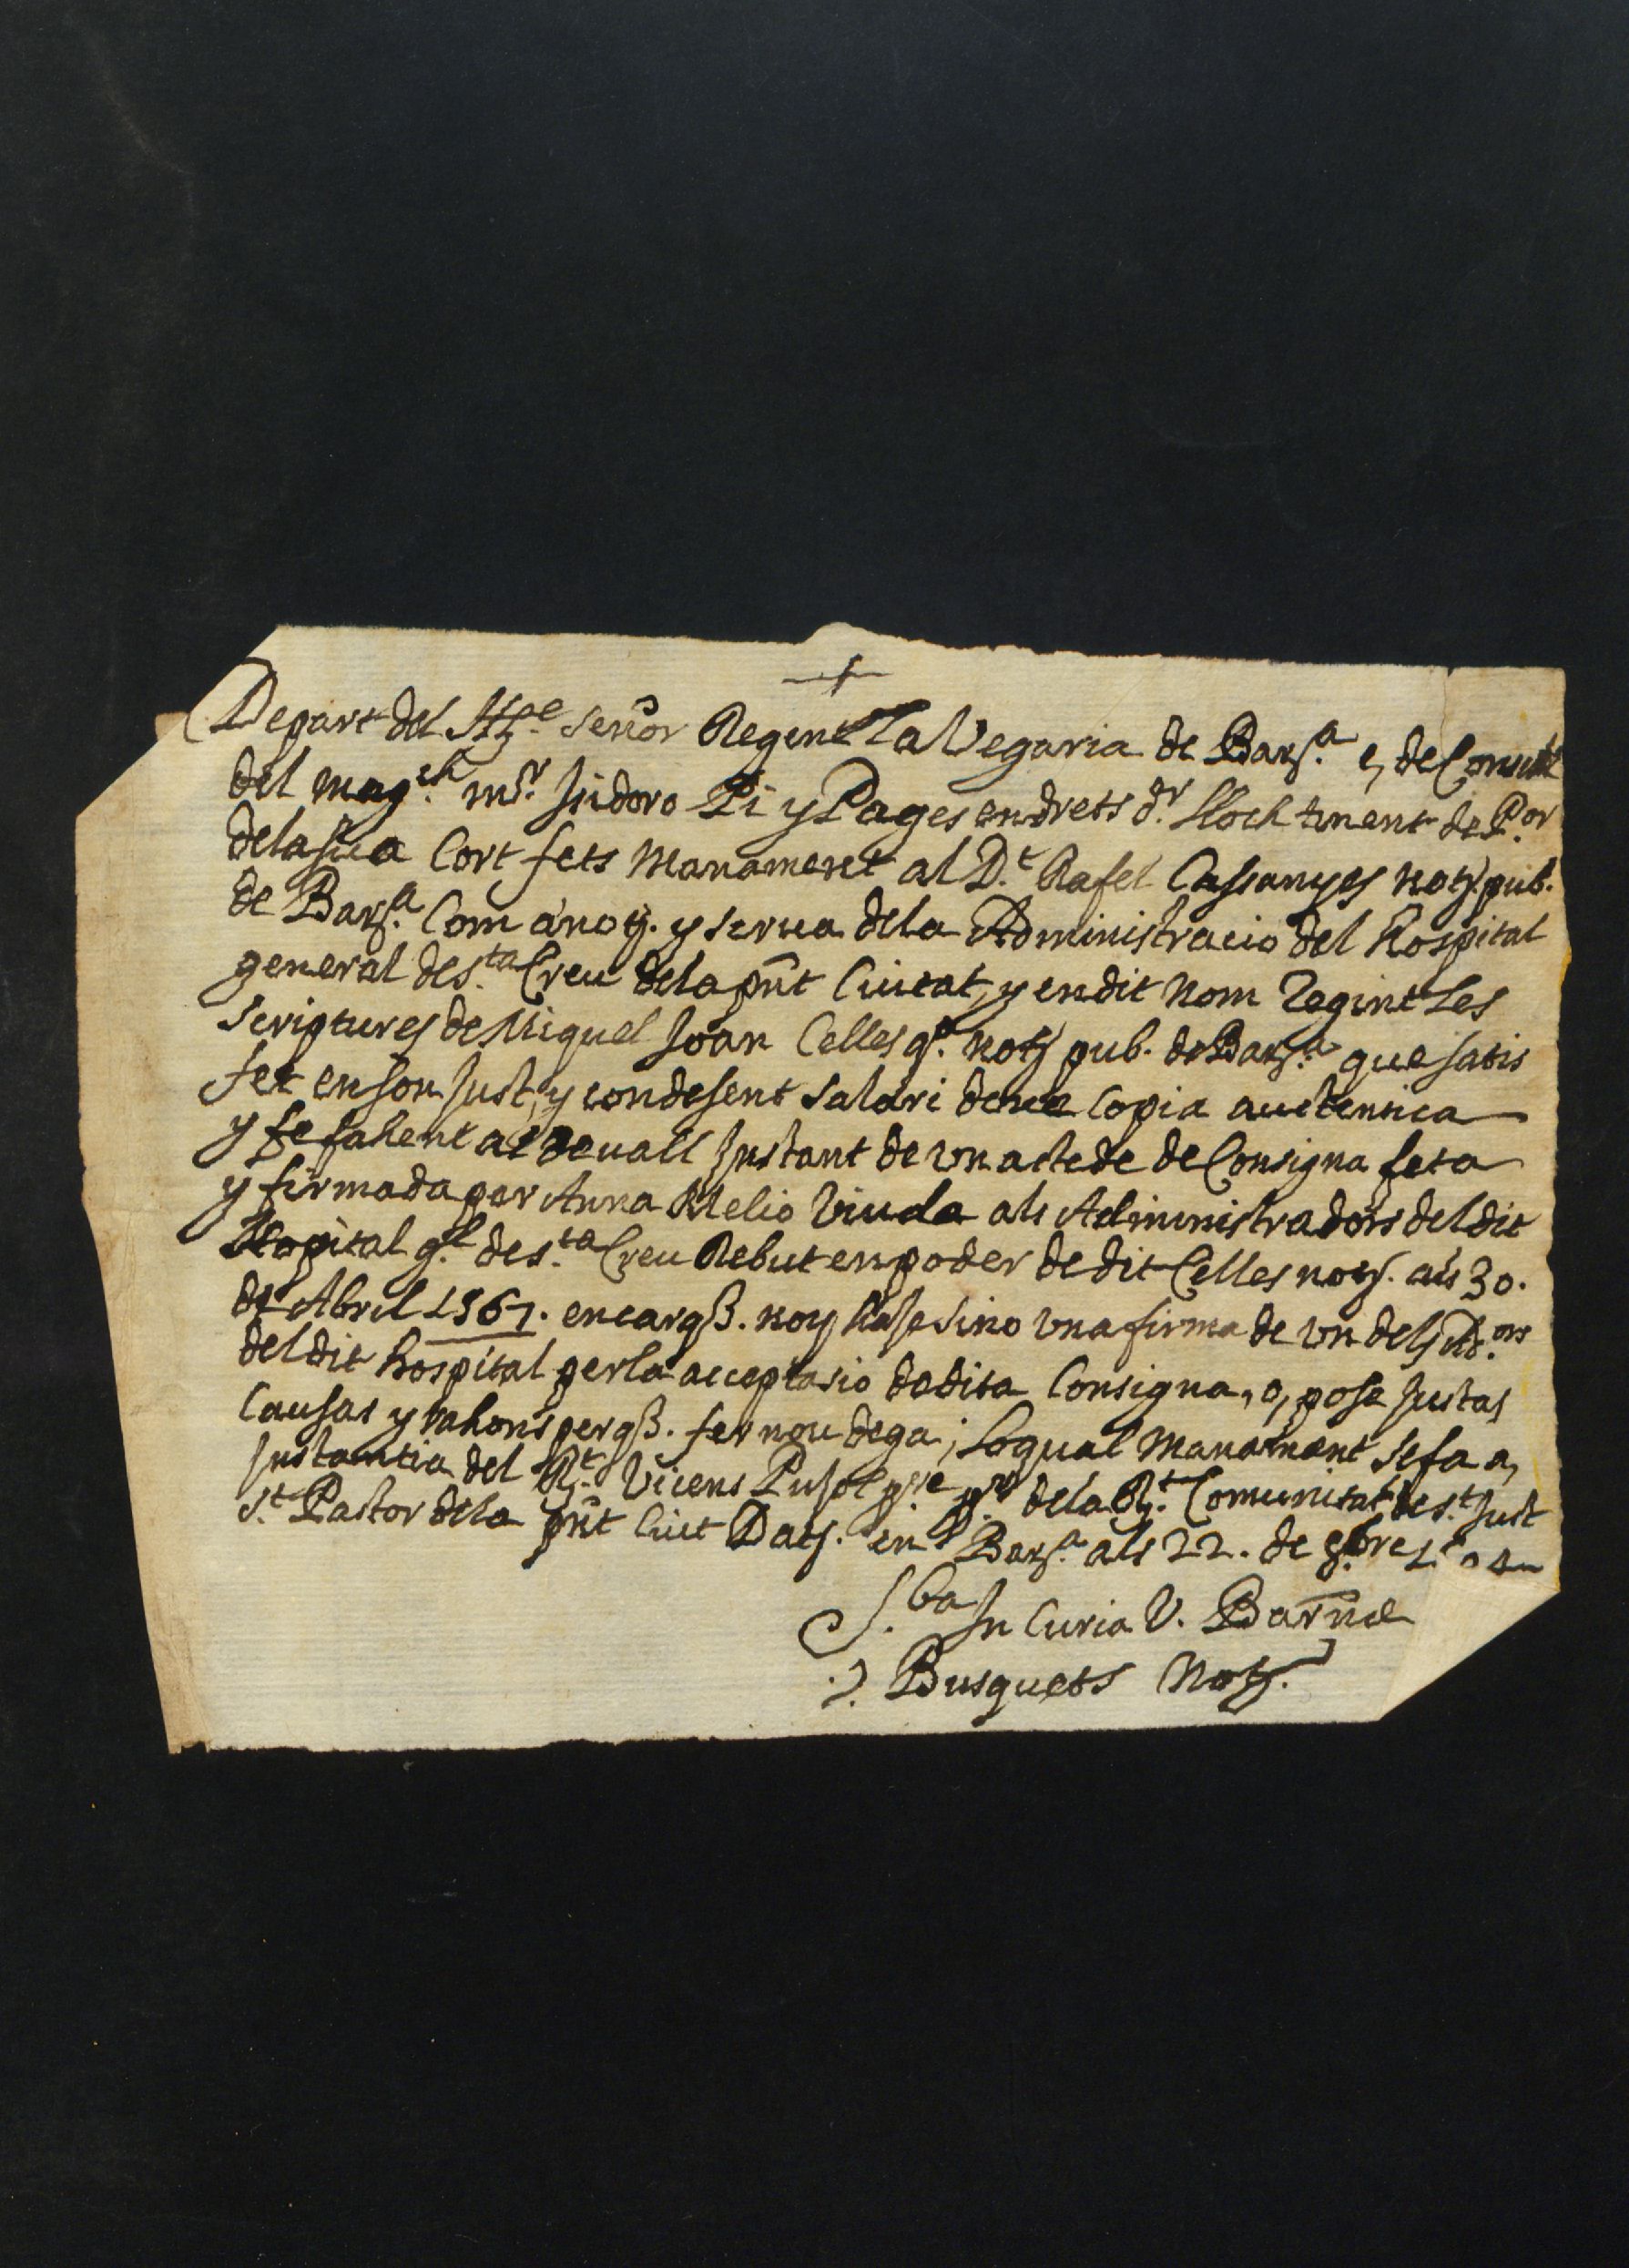 +
Depart del Itge señor Regent La Vegaria de Barsa. e, de Consell
del magch. mr. Isidoro Pi y Pages en drets dr. Lloch tinent de Por.
dela sua Cort fets Manament al Dt. Rafel Cassanyes noty. pub.
de Barsa. Com a noty. y scriva dela Administracio del Hospital
general de sta. Creu dela pnt Ciutat, y en dit nom Regint Les
scriptures de Miquel Joan Celles qo. noty pub. de Barsa. que satis
fet en son just, y condesent salari done Copia auctentica
y fefahent al devall Instant de un acte de de Consigna feta
y firmada per Anna Melio Viuda als Administradors del dit
Hospital gl. de sta. Creu Rebut en poder de dit Celles noty. als 30.
de Abril 1567. encaraqß. noy hase sino una firma de un dels Adors.
del dit hospital per la acceptasio de dita Consigna, o, pose justas
Causas y rahons perqß. fer nou dega; Loqual Manament se fa a,
Instantia del Rt. Vicens Pujol pre pr. dela Rt. Comunitat de st. Just
St. Pastor dela pnt Ciut Daty. en Barsa. als 22. de 8bre
Sba In Curia V. Barnæ
J. Busquets Noty.